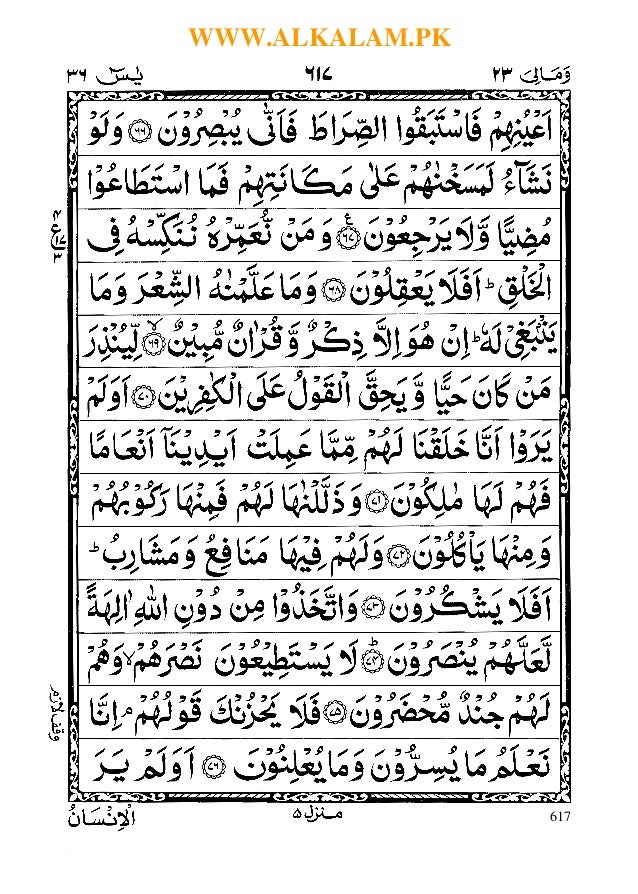 WWW.ALKALAM.PK
وَمَالِیَ ٢٣ ٦١٧ یٰسٓ ٣٦
اَعْیُنِهِمْ فَاسْتَبَقُوا الصِّرَاطَ فَاَنّٰی یُبْصِرُوْنَ ﴿٦٦﴾ وَلَوْ
نَشَآءُ لَمَسَخْنٰهُمْ عَلٰی مَكَانَتِهِمْ فَمَا اسْتَطَاعُوْا
مُضِیًّا وَّلَا یَرْجِعُوْنَ ﴿٦٧﴾ ع وَمَنْ نُّعَمِّرْهُ نُنَكِّسْهُ فِی
الْخَلْقِ ؕ اَفَلَا یَعْقِلُوْنَ ﴿٦٨﴾ وَمَا عَلَّمْنٰهُ الشِّعْرَ وَمَا
یَنْۢبَغِیْ لَهٗ ؕ اِنْ هُوَ اِلَّا ذِكْرٌ وَّقُرْاٰنٌ مُّبِیْنٌ ﴿٦٩﴾ لِّیُنْذِرَ
مَنْ كَانَ حَیًّا وَّیَحِقَّ الْقَوْلُ عَلَی الْكٰفِرِیْنَ ﴿٧٠﴾ اَوَلَمْ
یَرَوْا اَنَّا خَلَقْنَا لَهُمْ مِّمَّا عَمِلَتْ اَیْدِیْنَاۤ اَنْعَامًا
فَهُمْ لَهَا مٰلِكُوْنَ ﴿٧١﴾ وَذَلَّلْنٰهَا لَهُمْ فَمِنْهَا رَكُوْبُهُمْ
وَمِنْهَا یَاْكُلُوْنَ ﴿٧٢﴾ وَلَهُمْ فِیْهَا مَنَافِعُ وَمَشَارِبُ ؕ
اَفَلَا یَشْكُرُوْنَ ﴿٧٣﴾ وَاتَّخَذُوْا مِنْ دُوْنِ اللّٰهِ اٰلِهَةً
لَّعَلَّهُمْ یُنْصَرُوْنَ ﴿٧٤﴾ؕ لَا یَسْتَطِیْعُوْنَ نَصْرَهُمْ ۙ وَهُمْ
لَهُمْ جُنْدٌ مُّحْضَرُوْنَ ﴿٧٥﴾ فَلَا یَحْزُنْكَ قَوْلُهُمْ ۘ اِنَّا
نَعْلَمُ مَا یُسِرُّوْنَ وَمَا یُعْلِنُوْنَ ﴿٧٦﴾ اَوَلَمْ یَرَ
٤ ع ١٧ ٣
وقف لازم
الْاِنْسَانُ منزل ٥ 617